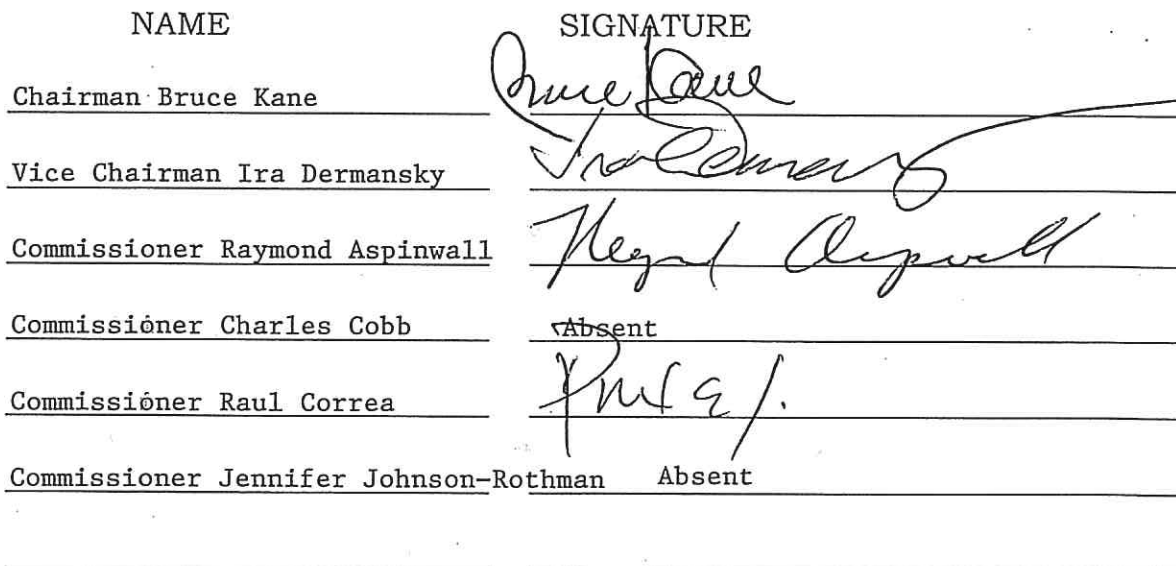 NAME SIGNATURE
Chairman Bruce Kane Bruce Kane
Vice Chairman Ira Dermansky Ira Dermansky
Commissioner Raymond Aspinwall Raymond Aspinwall
Commissioner Charles Cobb Absent
Commissioner Raul Correa
Commissioner Jennifer Johnson-Rothman Absent